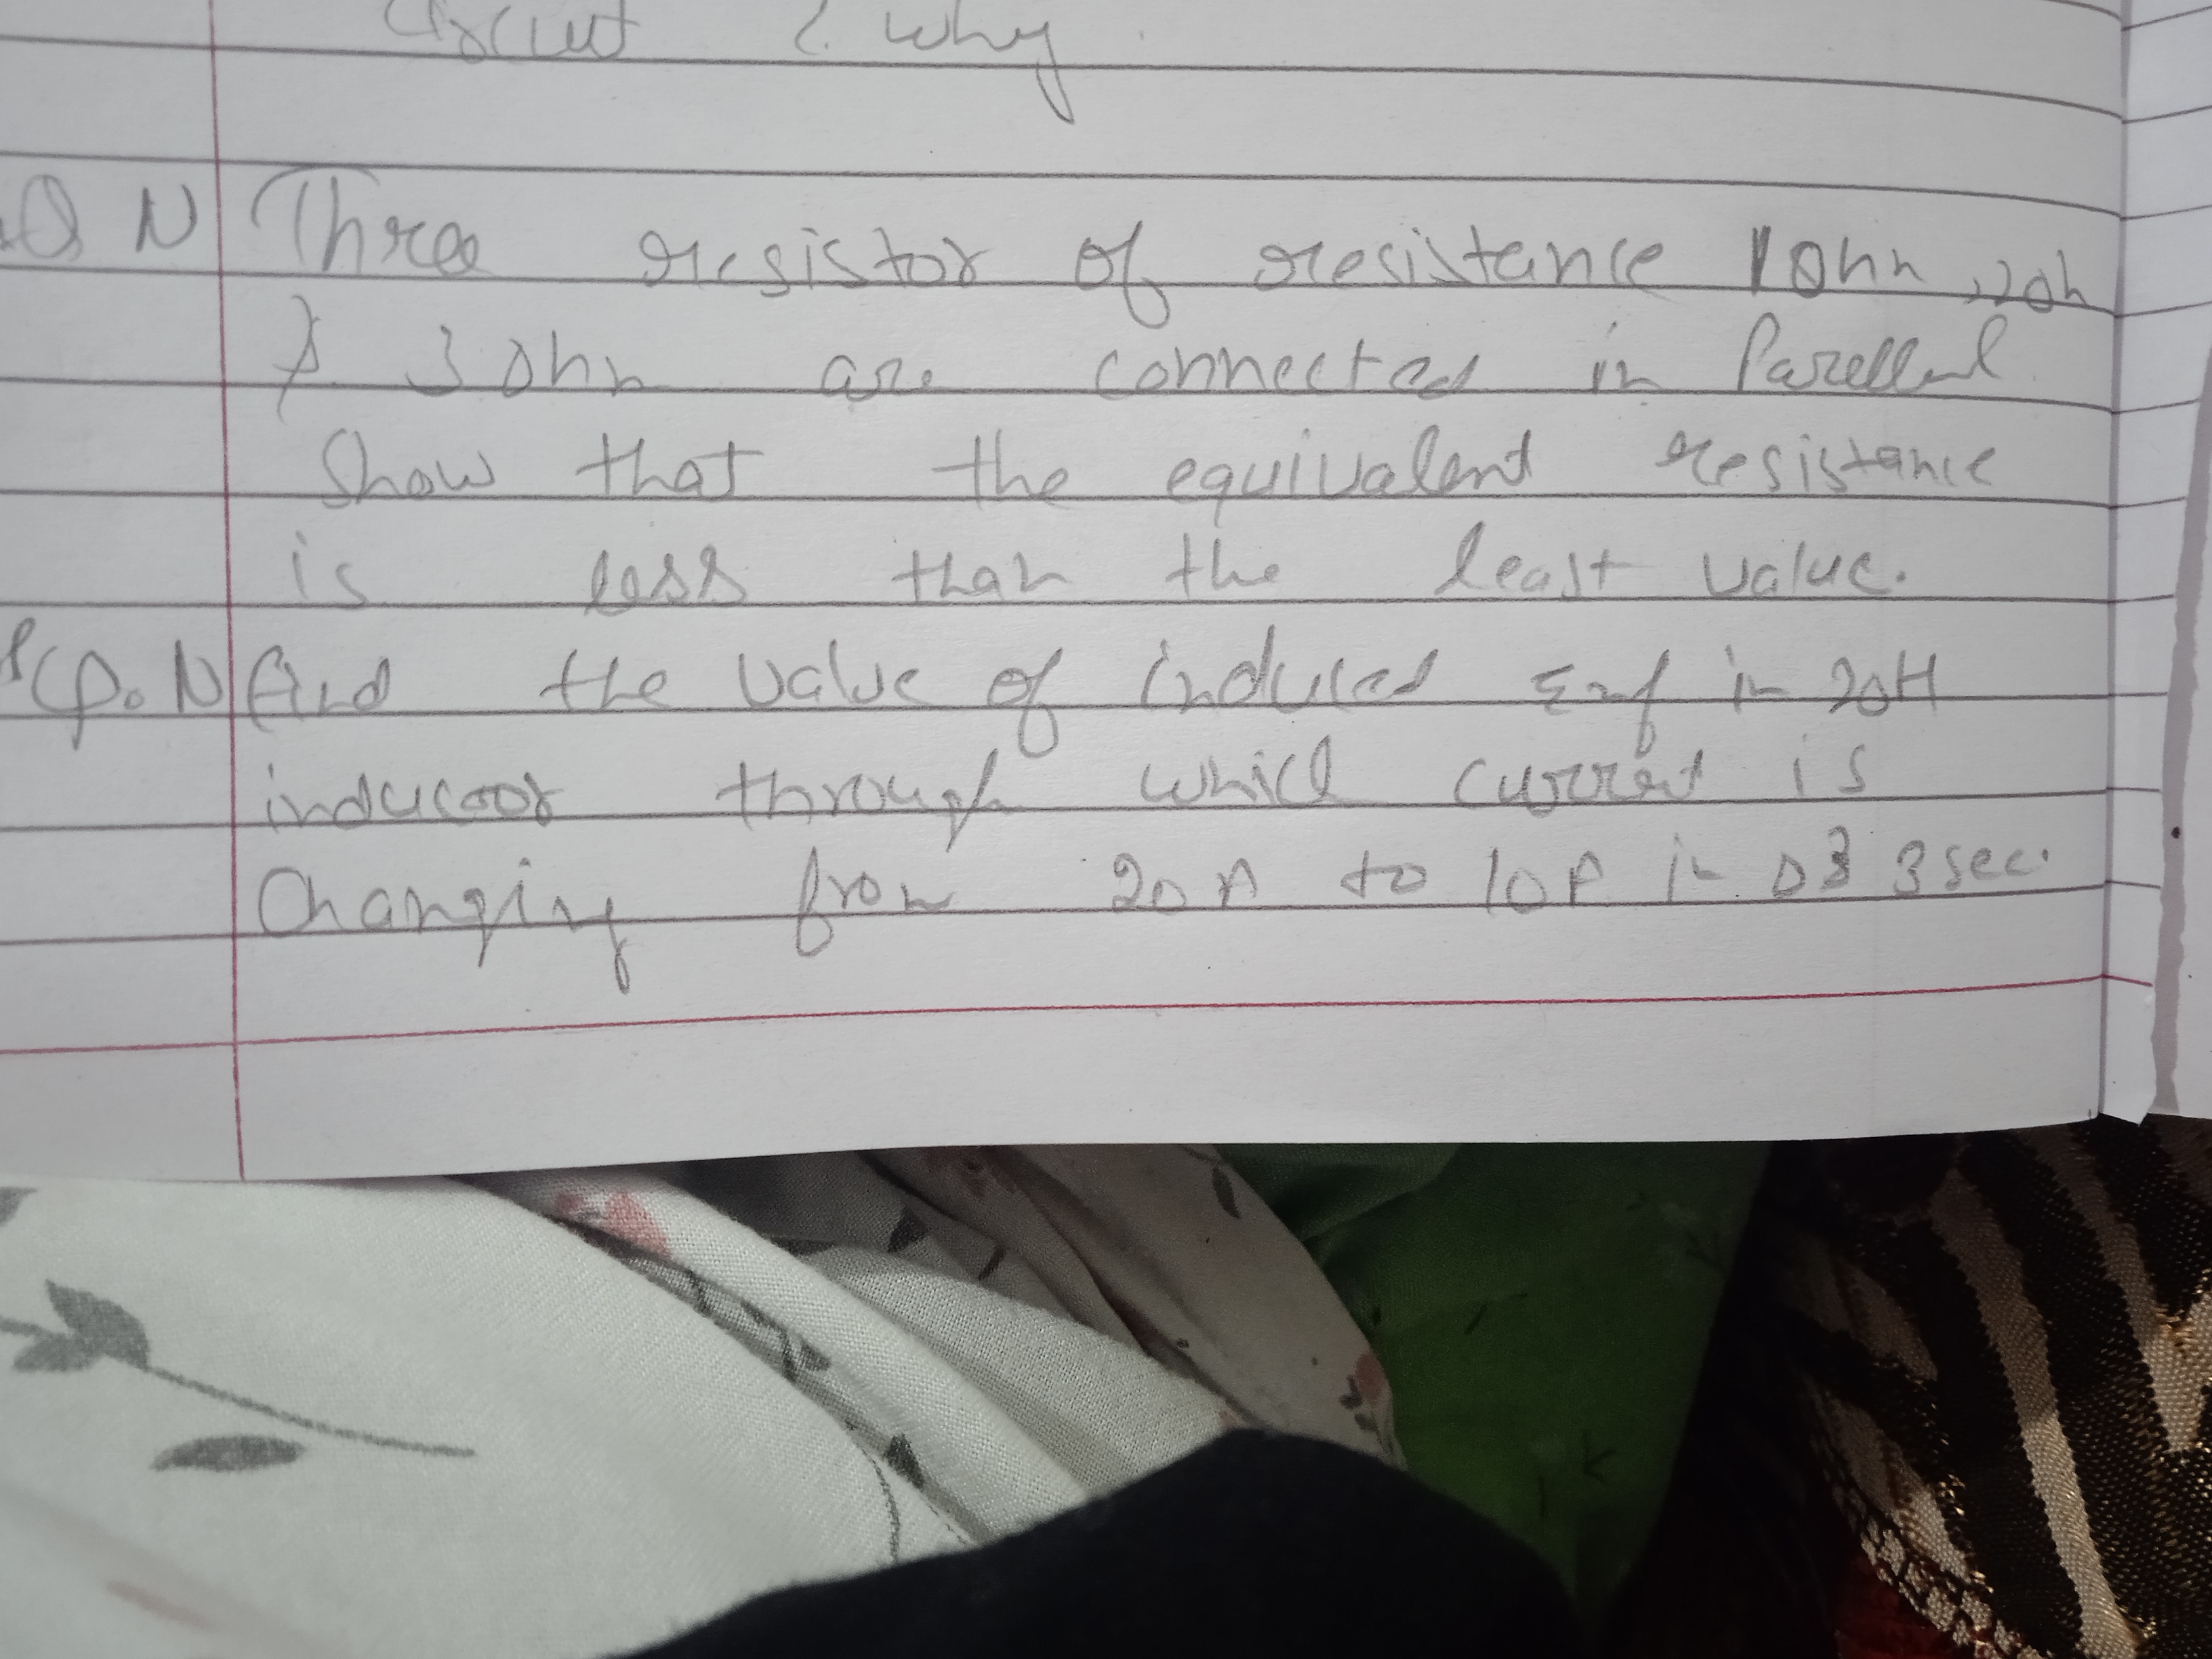 Circuit & why.
Q N Three resistor of resistance 1 Ohm, 2 oh
& 3 Ohm are connected in Parellel
Show that the equivalent resistance
is less than the least value.
Q. N find the value of induced Emf in 20H
inducoor through which current is
Changing from 20 A to 10 A in 3 sec.